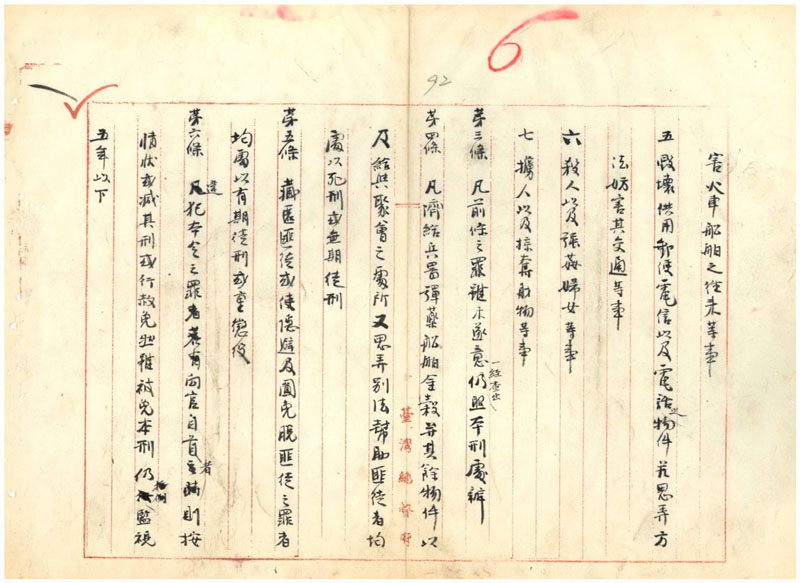 6
92
害火車船舶之往来等事
五 毀壞供用郵便電信以及電話之物件若思弄方
法妨害其交通等事
六 殺人以及強姦婦女等事
七 擄人以及掠奪財物等事
第三條 凡前條之罪雖未遂意一經查出仍照本刑處辦
第四條 凡濟給兵器彈藥船舶金穀并其餘物件以
及給與聚會之處所又思弄別法幫助匪徒者均
處以死刑或無期徒刑
第五條 藏匿匪徒或使隱避及圖免脫匪徒之罪者
均處以有期徒刑或重懲役
第六條 凡違犯本令之罪者若有向官自首者則按
情狀或減其刑或行赦免也雖被免本刑仍監視
五年以下
臺灣總督府